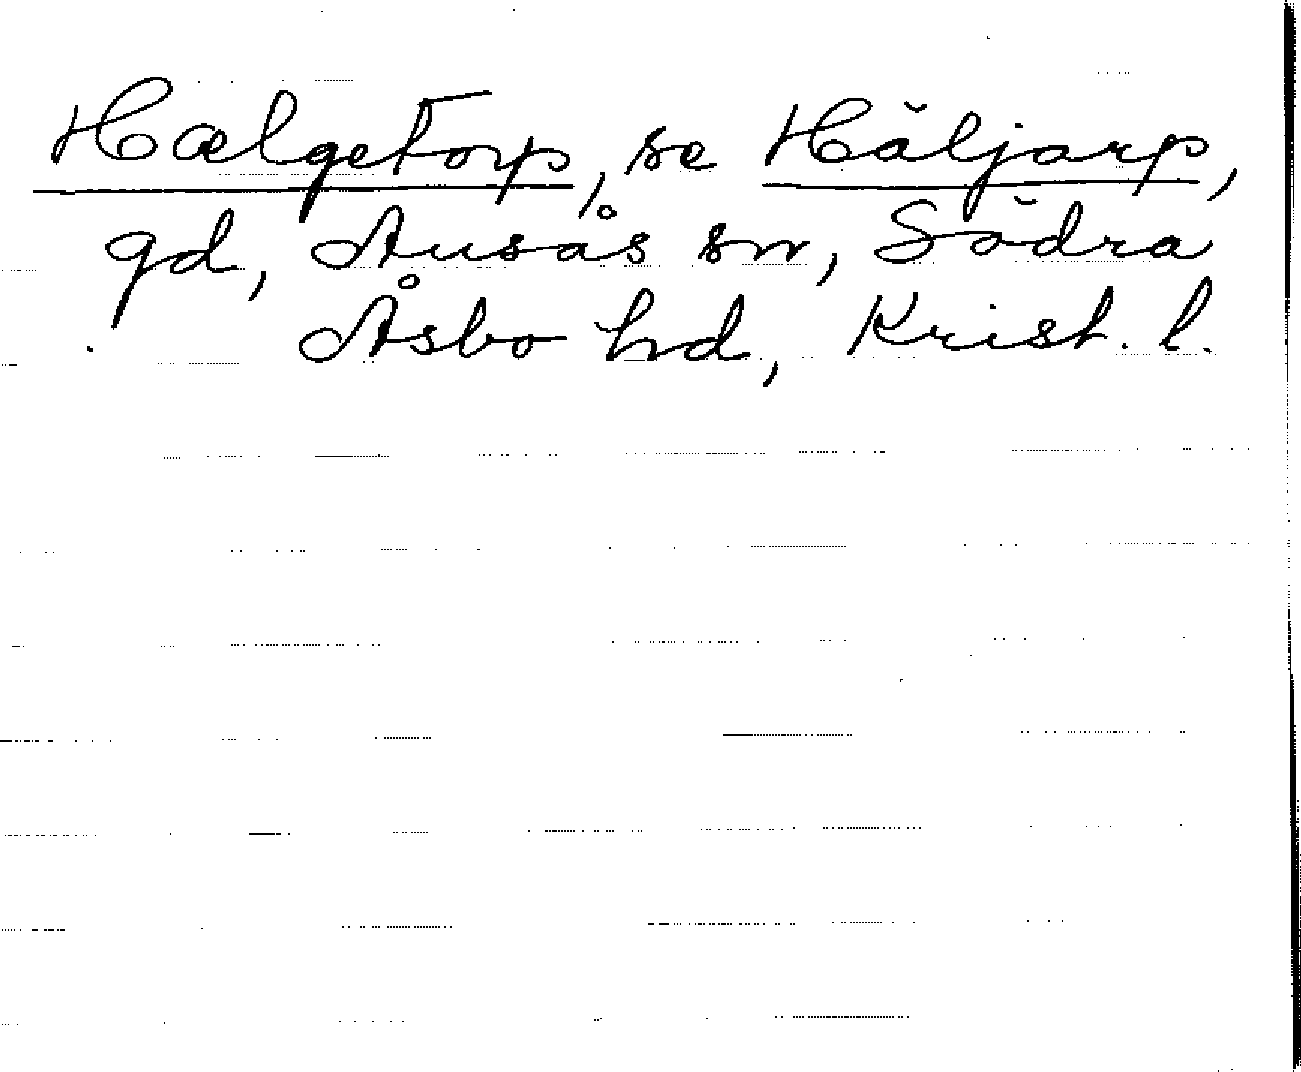 Hælgetorp, se Häljarp,
gd, Ausås sn, Södra
Åsbo hd, Krist. l.